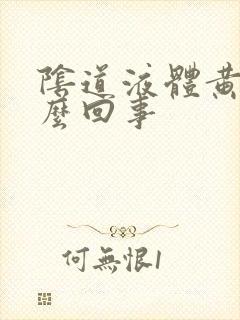 陰道液體黃
麼回事
何無恨1